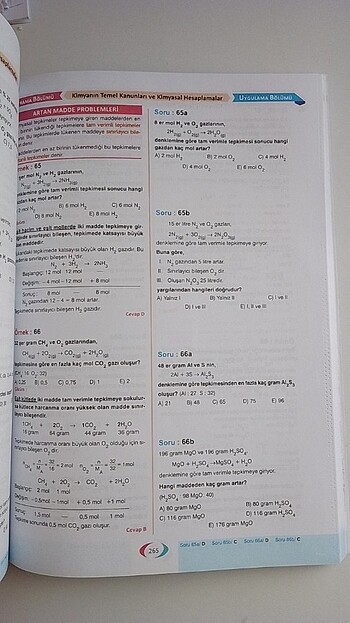 Kimyanın Temel Kanunları ve Kimyasal Hesaplamalar
UYGULAMA BÖLÜMÜ
ARTAN MADDE PROBLEMLERİ
tepkimeler tepkimeye giren maddelerden en
birinin tükendiği tepkimelere tam verimli tepkimeler
Bu tepkimelerde tükenen maddeye sınırlayıcı bile-
denir.
maddelerden en az birinin tükenmediği bu tepkimelere
tepkimeler denir.
: 65
mol N₂ ve H₂ gazlarının,
N₂(g) + 3H₂(g) → 2NH₃(g)
denklemine göre tam verimli tepkimesi sonucu hangi
gazdan kaç mol artar?
B) 6 mol H₂ C) 6 mol N₂
D) 8 mol N₂ E) 8 mol H₂
eşit mollerde iki madde tepkimeye gir-
tepkimede katsayısı büyük
olan maddedir.
tepkimede katsayısı büyük olan H₂ gazıdır. Bu
sınırlayıcı bileşen H₂'dir.
N₂ + 3H₂ → 2NH₃
Başlangıç: 12 mol 12 mol
Değişim: – 4 mol –12 mol + 8 mol
Sonuç: 8 mol 8 mol
N₂ gazından 12 – 4 = 8 mol artar.
Tepkimede sınırlayıcı bileşen H₂ gazıdır.
Cevap D
Örnek : 66
32 şer gram CH₄ ve O₂ gazlarından,
CH₄(g) + 2O₂(g) → CO₂(g) + 2H₂O(g)
tepkimesine göre en fazla kaç mol CO₂ gazı oluşur?
A) 0,25 B) 0,5 C) 0,75 D) 1 E) 2
Eşit kütlede iki madde tam verimle tepkimeye sokulur-
sa kütlece harcanma oranı yüksek olan madde sınır-
layıcı bileşendir.
1CH₄ + 2O₂ → 1CO₂ + 2H₂O
16 gram 64 gram 44 gram 36 gram
Tepkimede harcanma oranı büyük olan O₂ olduğu için sı-
nırlayıcı bileşen O₂ dir.
CH₄ + 2O₂ → CO₂ + 2H₂O
Başlangıç: 2 mol 1 mol
Değişim: –0,5mol –1mol +0,5 mol +1mol
Sonuç: 1,5mol 0,5 mol 1 mol
Tepkime sonunda 0,5 mol CO₂ gazı oluşur.
Cevap B
Soru : 65a
8 er mol H₂ ve O₂ gazlarının,
2H₂(g) + O₂(g) → 2H₂O(g)
denklemine göre tam verimli tepkimesi sonucu hangi
gazdan kaç mol artar?
A) 2 mol H₂ B) 2 mol O₂ C) 4 mol H₂
D) 4 mol O₂ E) 6 mol O₂
Soru : 65b
15 er litre N₂ ve O₂ gazları,
2N₂(g) + 3O₂(g) → 2N₂O₃(g)
denklemine göre tam verimli tepkimeye giriyor.
Buna göre,
I. N₂ gazından 5 litre artar.
II. Sınırlayıcı bileşen O₂ dir.
III. Oluşan N₂O₃ 25 litredir.
yargılarından hangileri doğrudur?
A) Yalnız I B) Yalnız II C) I ve II
D) I ve III E) I, II ve III
Soru : 66a
48 er gram Al ve S nin,
2Al + 3S → Al₂S₃
denklemine göre tepkimesinden en fazla kaç gram Al₂S₃
oluşur? (Al : 27 S : 32)
A) 21 B) 48 C) 65 D) 75 E) 96
Soru : 66b
196 gram MgO ve 196 gram H₂SO₄,
MgO + H₂SO₄ → MgSO₄ + H₂O
denklemine göre tam verimle tepkimeye giriyor.
Hangi maddeden kaç gram artar?
(H₂SO₄ : 98 MgO: 40)
A) 80 gram MgO B) 80 gram H₂SO₄
C) 116 gram MgO D) 116 gram H₂SO₄
E) 176 gram MgO
265
Soru 65a/ D Soru 65b/ C Soru 66a/ D Soru 66b/ C